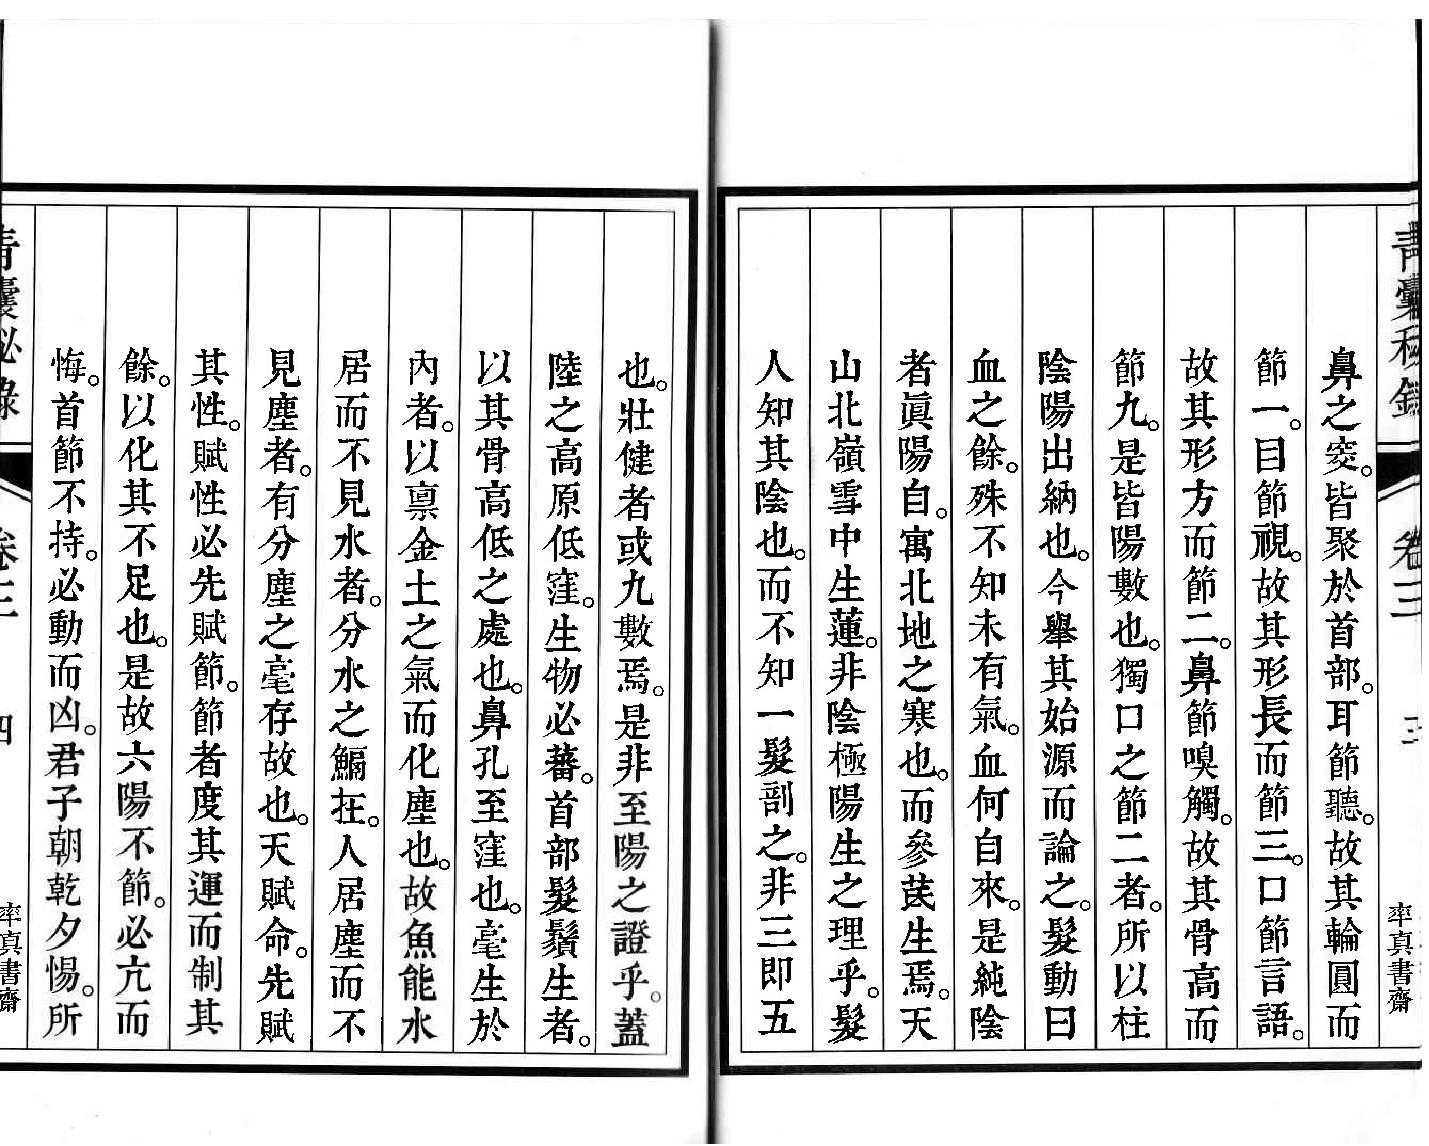 青囊秘錄
卷三
三
率真書齋
鼻之窔。皆聚於首部。耳節聽。故其輪圓而
節一。目節視。故其形長而節三。口節言語。
故其形方而節二。鼻節嗅觸。故其骨高而
節九。是皆陽數也。獨口之節二者。所以柱
陰陽出納也。今舉其始源而論之。髮動曰
血之餘。殊不知未有氣。血何自來。是純陰
者眞陽自。寓北地之寒也。而參茋生焉。天
山北嶺雪中生蓮。非陰極陽生之理乎。髮
人知其陰也。而不知一髮剖之。非三即五
也。壯健者或九數焉。是非至陽之證乎。蓋
陸之高原低窪。生物必蕃。首部髮鬚生者。
以其骨高低之處也。鼻孔至窪也。毫生於
內者。以禀金土之氣而化塵也。故魚能水
居而不見水者。分水之鰯在。人居塵而不
見塵者。有分塵之毫存故也。天賦命。先賦
其性。賦性必先賦節。節者度其運而制其
餘。以化其不足也。是故六陽不節。必亢而
悔。首節不持。必動而凶。君子朝乾夕惕。所
青囊秘錄
卷三
四
率真書齋